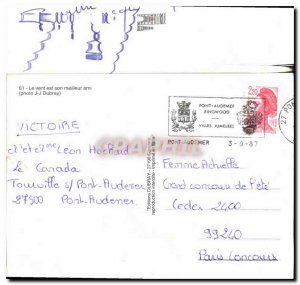 61 - Le vent est son meilleur ami
(photo J-J Dubray)
VICTOIRE
Léon Hochard
Le Canada
Tourville s/ Pont-Audemer
27500 Pont-Audemer
PONT-AUDEMER
RINGWOOD
VILLES JUMELÉES
PONT-AUDEMER
3-9-87
27 PON
2,20
Femme Actuelle
Grand concours de l'été
Cedex 2400
99240
Paris Concours